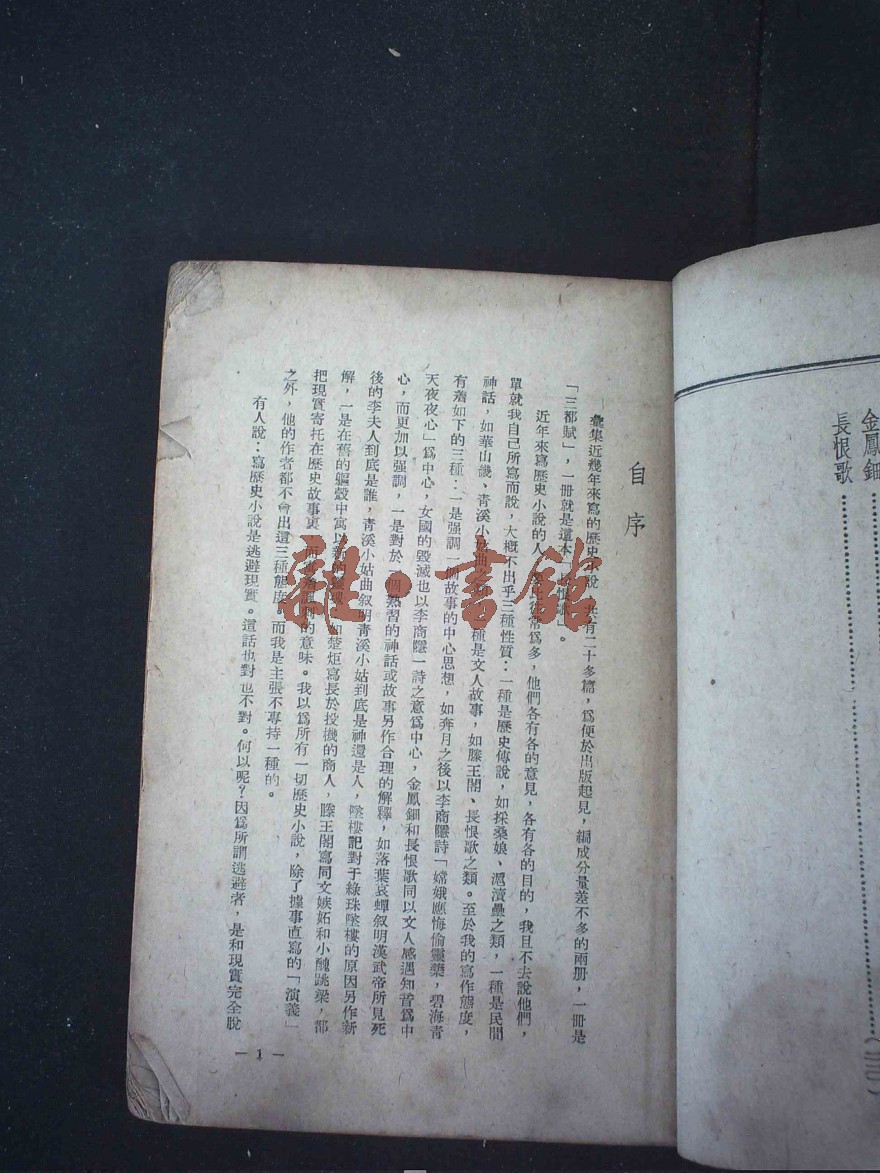 金鳳鈿
長恨歌
自序
彙集近幾年來寫的歷史小說，共有二十多篇，爲便於出版起見，編成分量差不多的兩册，一册是
「三都賦」，一册就是這本「長恨歌」。
近年來寫歷史小說的人，常爲多，他們各有各的意見，各有各的目的，我且不去說他們，
單就我自己所寫而說，大概不出乎三種性質：一種是歷史傳說，如採桑娘、滬瀆壘之類，一種是民間
神話，如華山畿、青溪小姑曲之類，一種是文人故事，如滕王閣、長恨歌之類。至於我的寫作態度，
有着如下的三種：一是强調一個故事的中心思想，如奔月之後以李商隱詩「嫦娥應悔偷靈藥，碧海青
天夜夜心」爲中心，女國的毀滅也以李商隱一詩之意爲中心，金鳳鈿和長恨歌同以文人感遇知音爲中
心，而更加以强調，一是對於一個熟習的神話或故事另作合理的解釋，如落葉哀蟬叙明漢武帝所見死
後的李夫人到底是誰，青溪小姑曲叙明青溪小姑到底是神還是人，墜樓記對于綠珠墜樓的原因另作新
解，一是在舊的軀殼中寓以新的，如楚炬寫長於投機的商人，滕王閣寫同文嫉妬和小醜跳梁，都
把現實寄托在歷史故事裏，而的意味。我以爲所有一切歷史小說，除了據事直寫的「演義」
之外，他的作者都不會出這三種態度。而我是主張不專持一種的。
有人說：寫歷史小說是逃避現實。這話也對也不對。何以呢？因爲所謂逃避者，是和現實完全脫
— 1 —
雜·書館